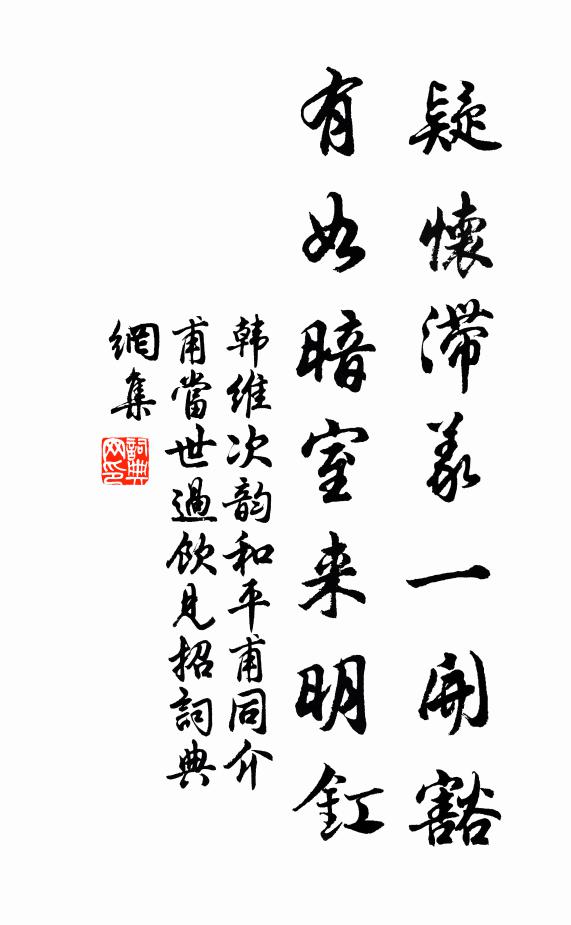 疑懷滯義一開豁
有如暗室来明釭
韩維次韵和平甫同介
甫當世過飲見招詞典
網集
詞典网印